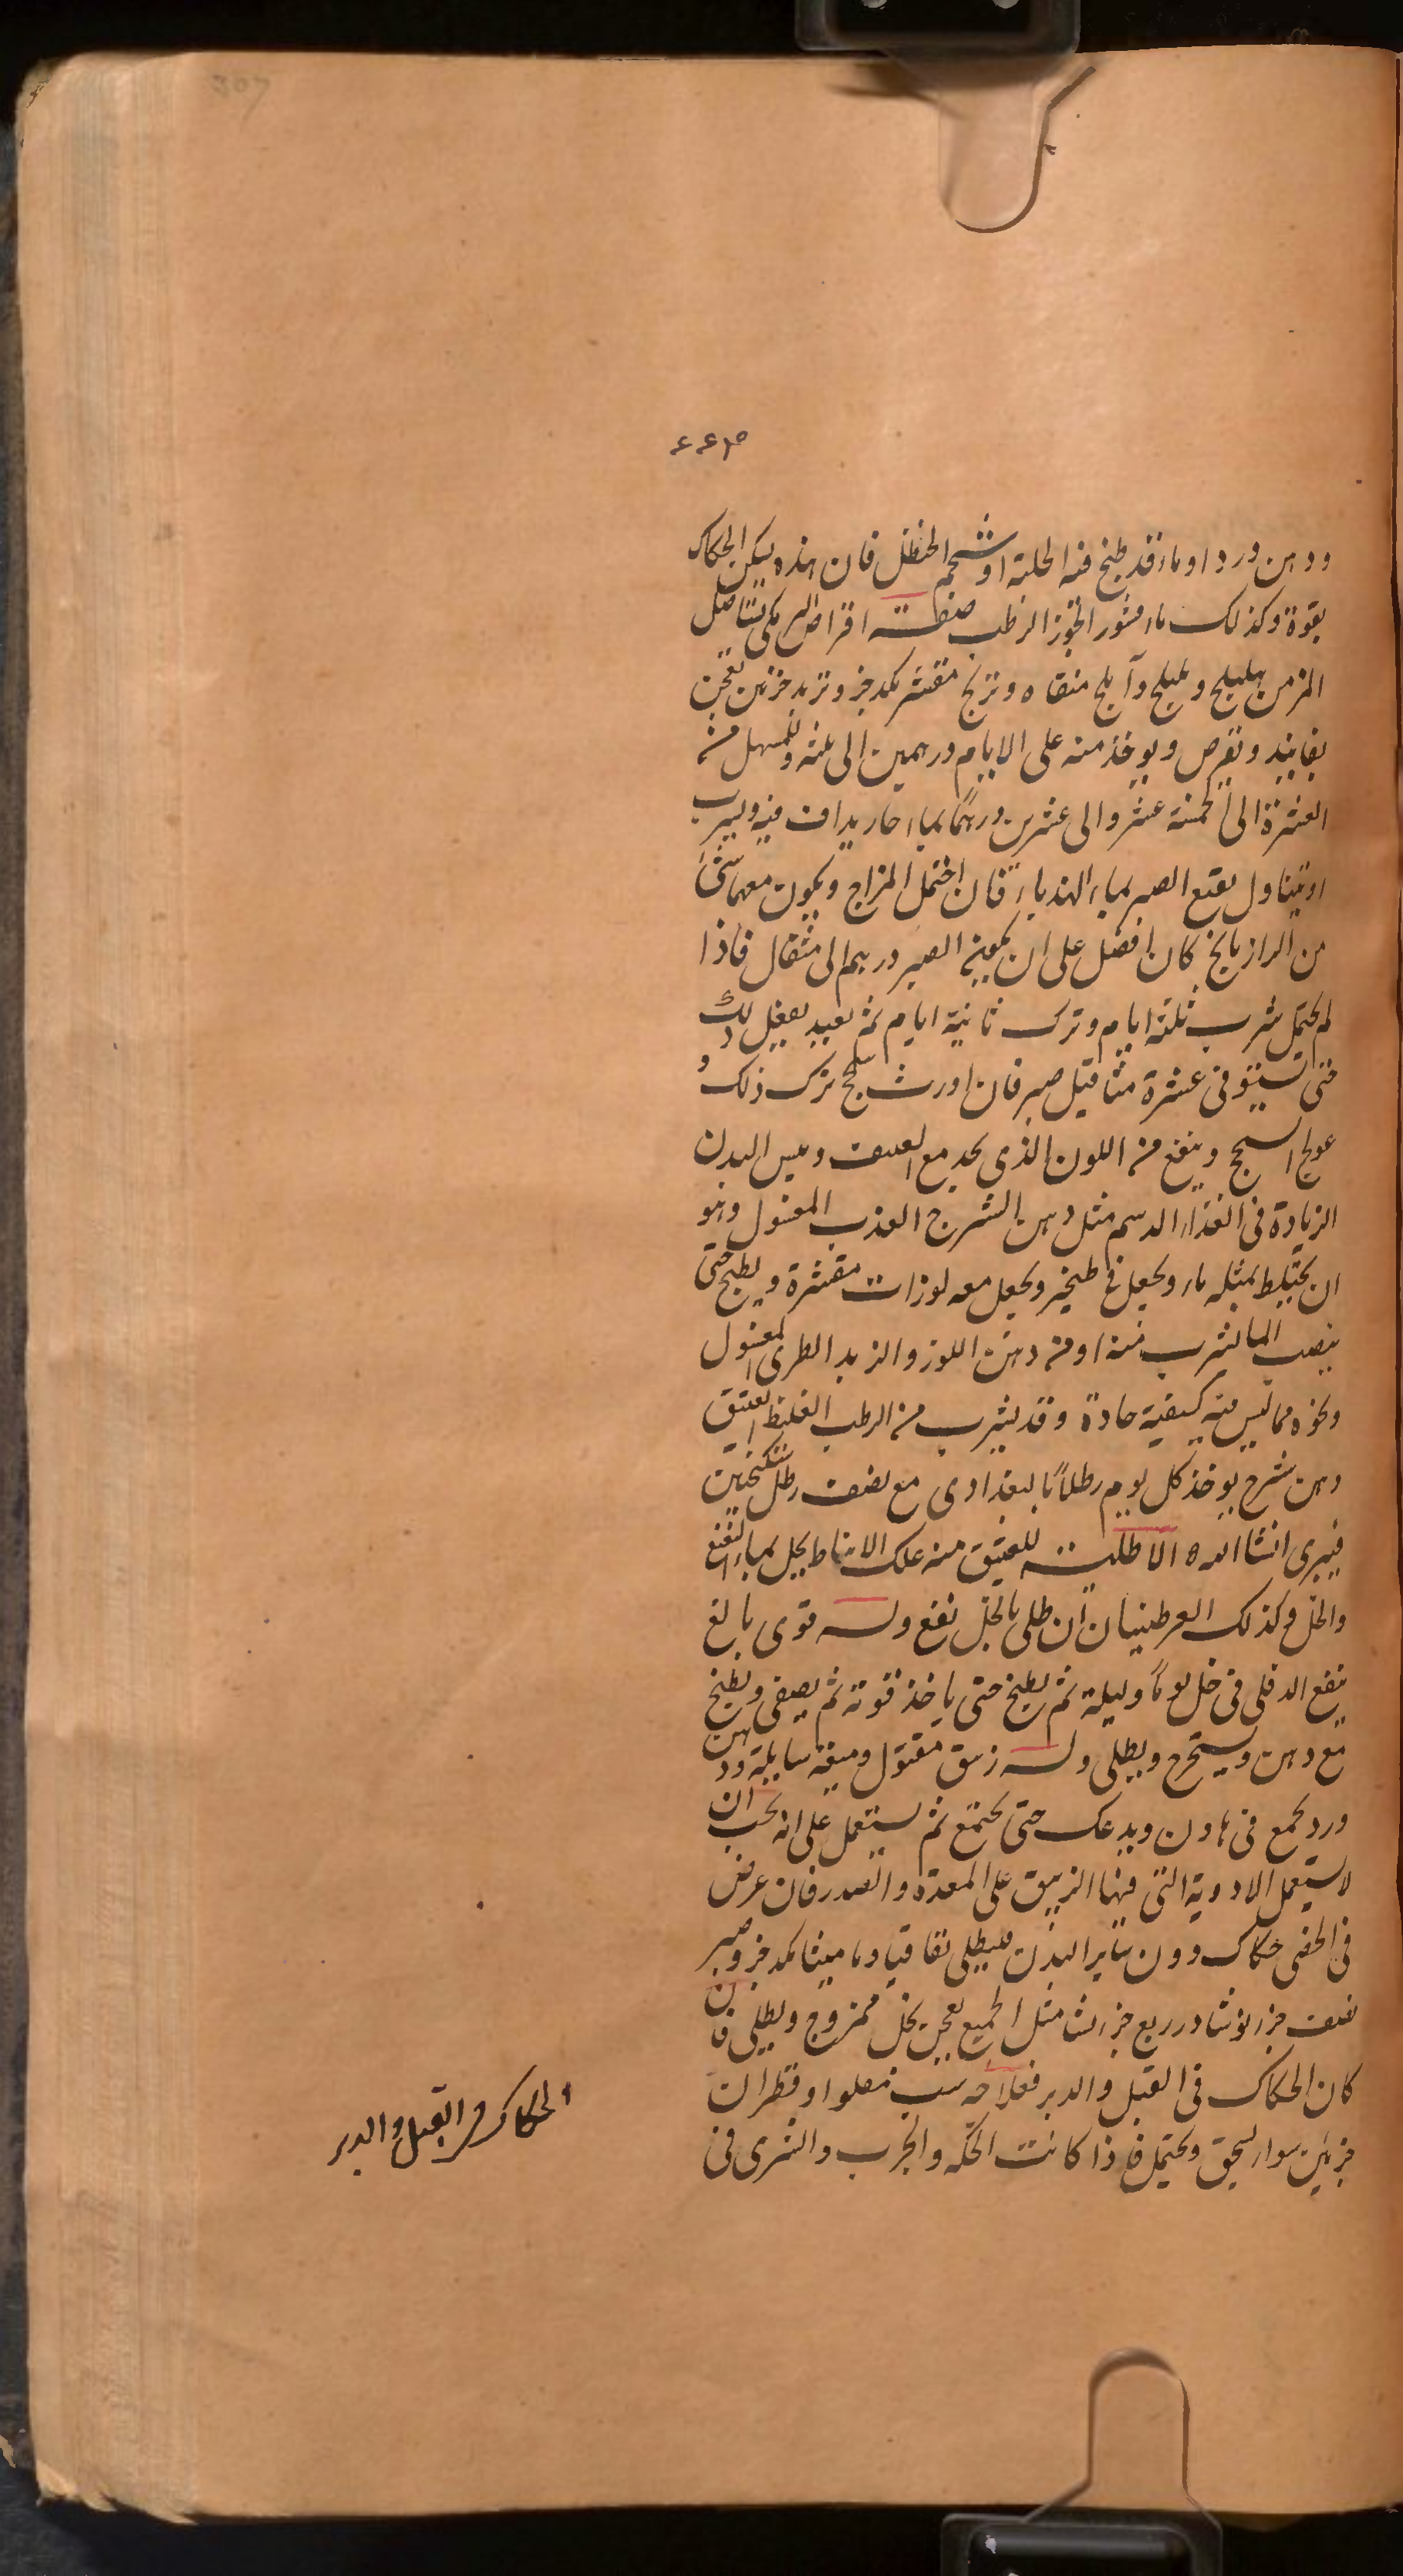 ودهن ورد او ماء قد طبخ فيه الحلبة او شحم الحنظل فان هذه يسكن الحكاك
بقوة وكذلك ماء قشور الجوز الرطب صفة اقراص البرمكى تستاصل
المزمن هليلج وبليلج وآملج منقاه وترنج مقشر يكد جزء وتربد جزئين تعجن
بفانيذ وتقرص ويوخذ منه على الايام درهمين الى ثلثه وللمسهل من
العشرة الى خمسة عشر والى عشرين درهما بماء حار يداف فيه ويشرب
او يتناول بقيع الصبر بماء الهندباء فان احتمل المزاج ويكون معها شئ
من الرازيانج كان افضل على ان يكون الصبر درهم الى مثقال فاذا
لم يحتمل شرب ثلثة ايام وترك ثانية ايام ثم يعيد يفعل ذلك
حتى يستوفى عشرة مثاقيل صبر فان اورث سحج ترك ذلك و
عولج السحج وينفع من اللون الذى يحد مع القشف ويبس البدن
الزيادة فى الغذاء الدسم مثل دهن الشيرج العذب المغسول وهو
ان يختلط بمثله ماء ويجعل فى طنجير ويجعل معه لوزات مقشرة ويطبخ حتى
ينصب الما يشرب منه او من دهن اللوز والزبد الطرى المغسول
ونحوه مما ليس فيه كيفية حادة وقد يشرب من الرطب الغليظ العتيق
دهن شيرج يوخذ كل يوم رطلا بالبغدادى مع نصف رطل سكنجبين
فيبرى انشاالله الاطلية للعتيق منه علك الانباط يحل بماء النعنع
والخل وكذلك العرطنيثا ان طلى بالخل نفع وله قوى بالغ
ينقع الدفلى فى خل يوما وليلة ثم يطبخ حتى ياخذ قوته ثم يصفى ويطبخ
مع دهن ويستخرج ويطلى وله زيبق مقتول وميعة سايلة ودهن
ورد يجمع فى هاون ويدعك حتى يجتمع ثم يستعمل على انه يجب ان
لا يستعمل الادوية التى فيها الزيبق على المعدة والصدر فان عرض
فى الخصى حكاك دون ساير البدن فليطلى بقاقيا وماميثا يكد جزء وصبر
نصف جزء نوشادر ربع جزء نشا مثل الجميع يعجن بخل ممزوج ويطلى فان
كان الحكاك فى القبل والدبر فعلاجه شب مصلوا وقطران
جزئين سواء يسحق ويحتمل فاذا كانت الحكه والجرب والشرى فى
الحكاك فى القبل والدبر